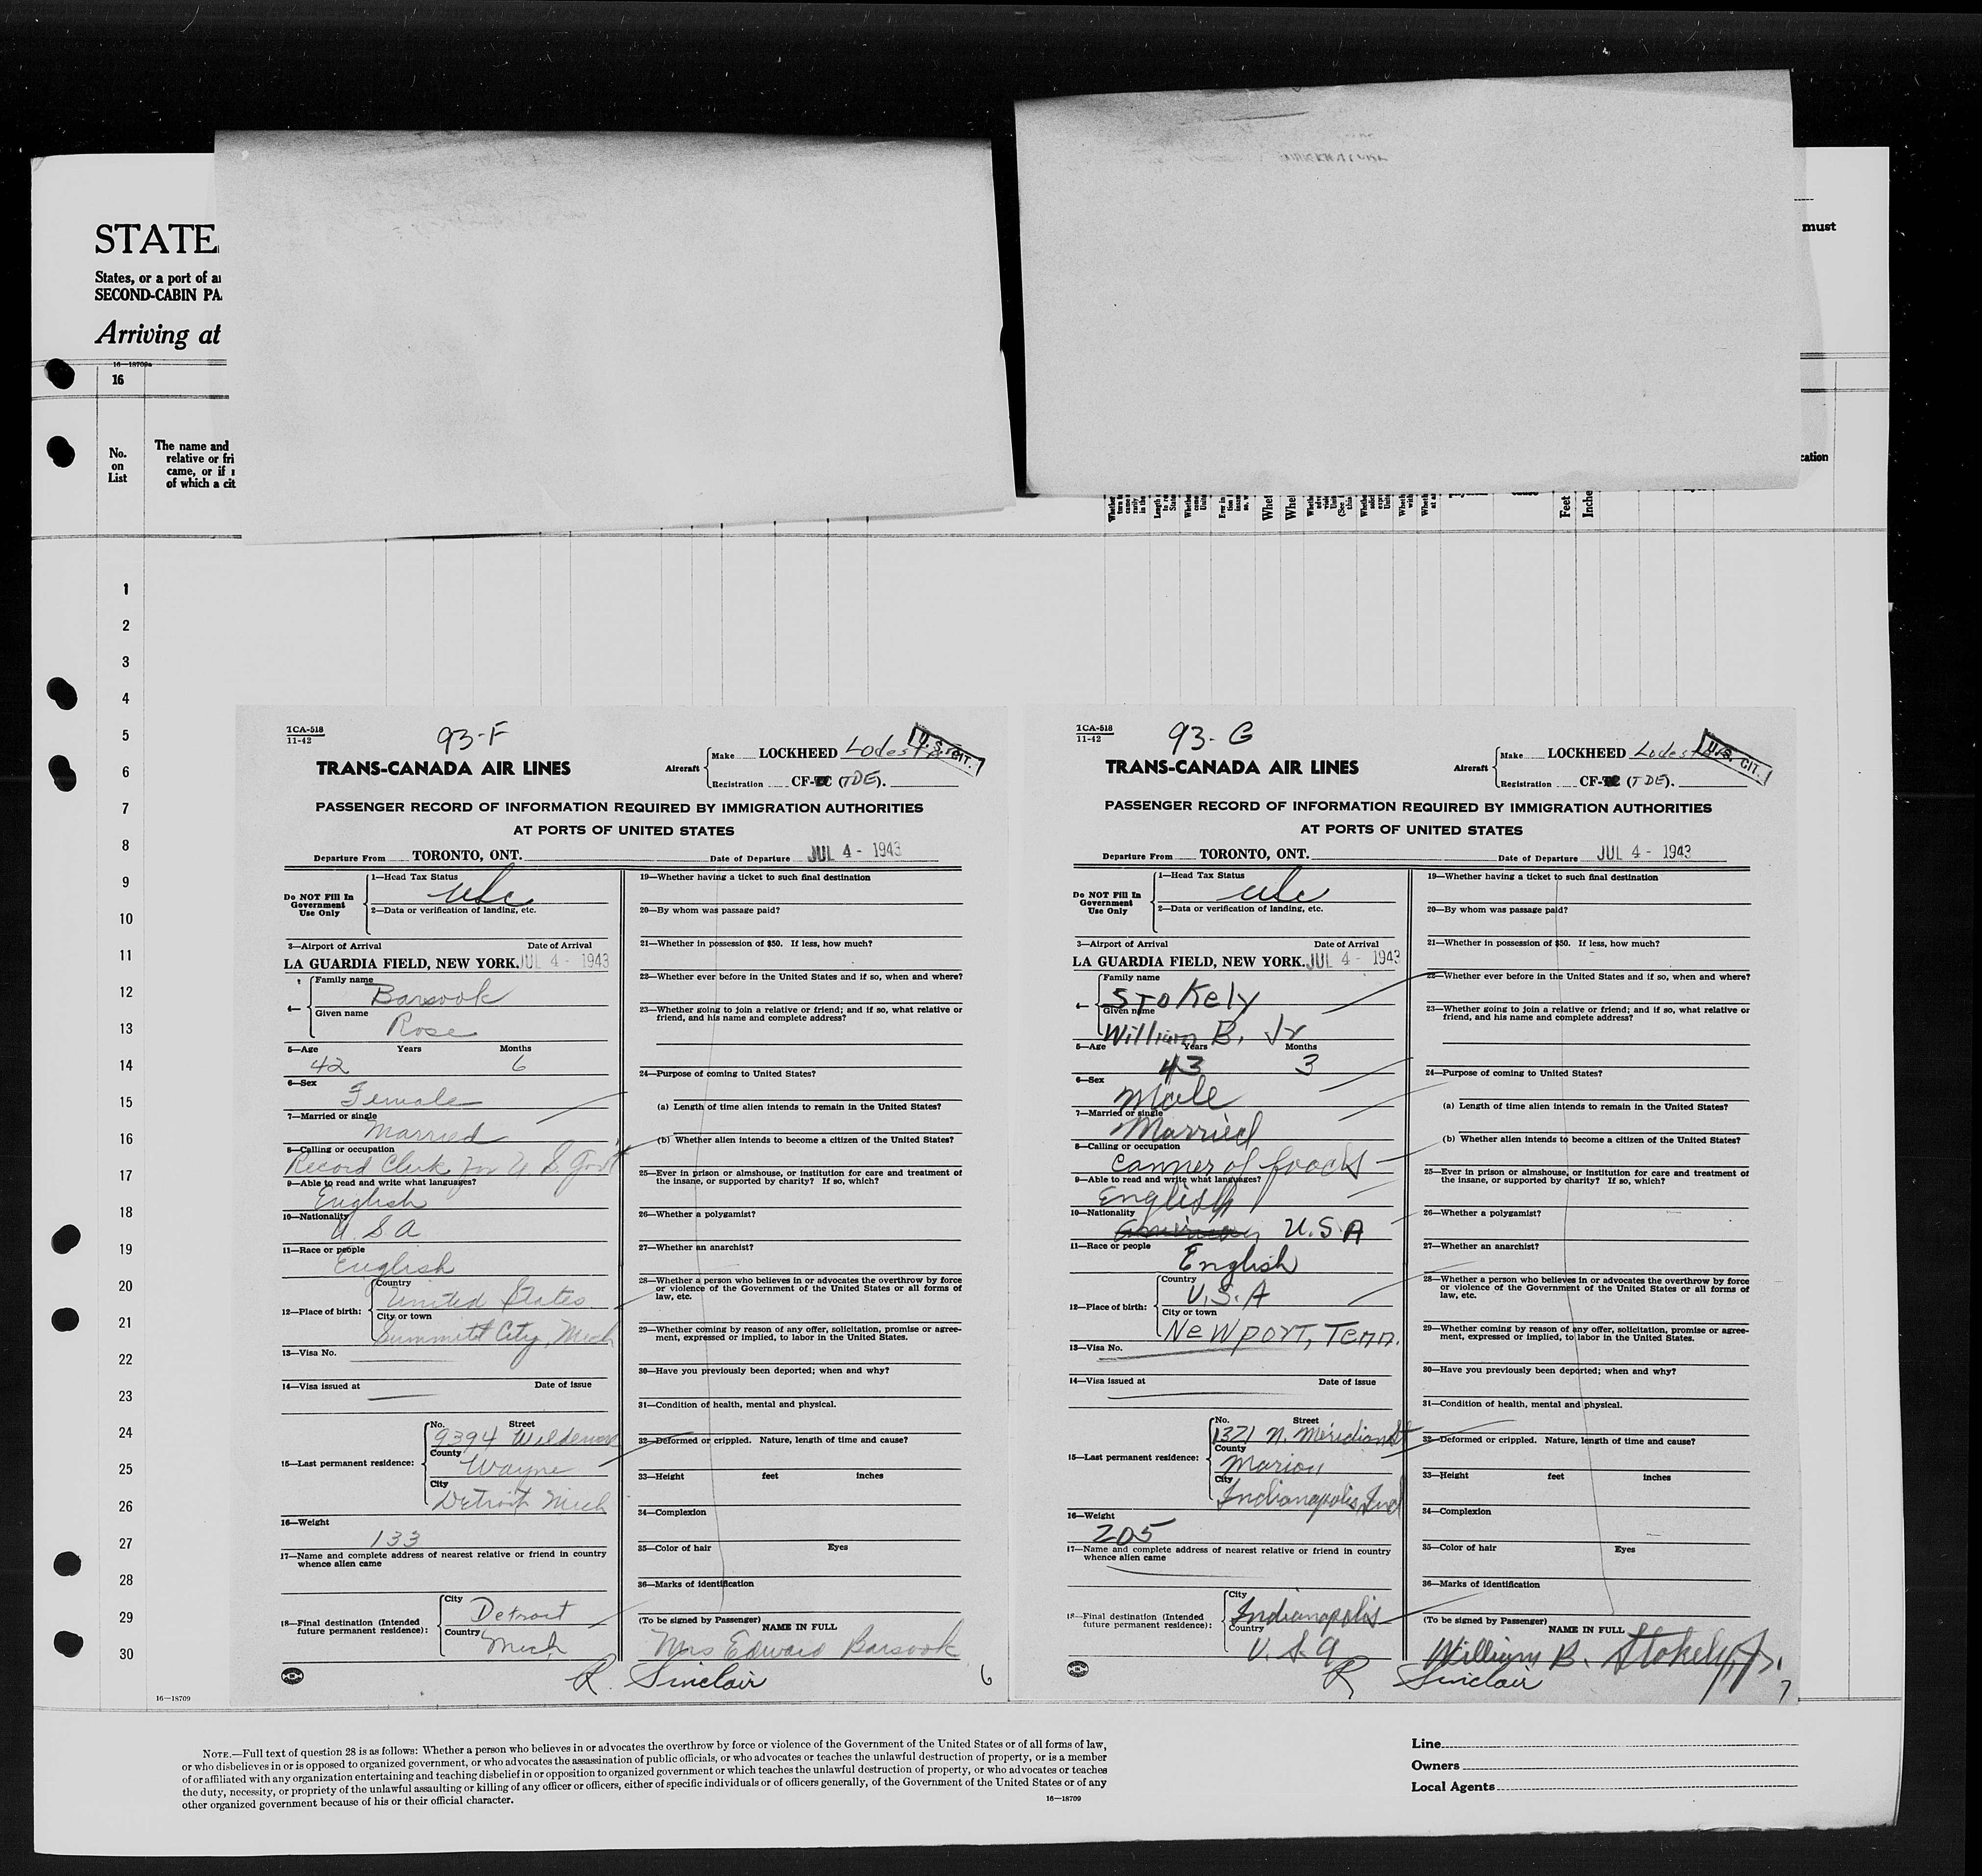 STATE
States, or a port of a
SECOND-CABIN PA
Arriving at
must
16—18709a
16
No.
on
List
The name and
relative or fri
came, or if
of which a cit
cation
Feet
Inche
1
2
3
4
5
6
7
8
9
10
11
12
13
14
15
16
17
18
19
20
21
22
23
24
25
26
27
28
29
30
TCA-518
11-42
93-F
U.S. CIT.
TRANS-CANADA AIR LINES
Aircraft
Make LOCKHEED Lodestar
Registration CF- (TDE).
PASSENGER RECORD OF INFORMATION REQUIRED BY IMMIGRATION AUTHORITIES
AT PORTS OF UNITED STATES
Departure From TORONTO, ONT. Date of Departure JUL 4 - 1943
Do NOT Fill In
Government
Use Only
1—Head Tax Status
usc
2—Data or verification of landing, etc.
3—Airport of Arrival Date of Arrival
LA GUARDIA FIELD, NEW YORK. JUL 4 - 1943
4—
Family name
Barsook
Given name
Rose
5—Age Years Months
42 6
6—Sex
Female
7—Married or single
Married
8—Calling or occupation
Record Clerk for U S Govt
9—Able to read and write what languages?
English
10—Nationality
U.S.A
11—Race or people
English
12—Place of birth:
Country
United States
City or town
Summitt City, Mich
13—Visa No.
14—Visa issued at Date of issue
15—Last permanent residence:
No. Street
9394
County
Wayne
City
Detroit Mich
16—Weight
133
17—Name and complete address of nearest relative or friend in country
whence alien came
18—Final destination (Intended
future permanent residence):
City
Detroit
Country
Mich
19—Whether having a ticket to such final destination
20—By whom was passage paid?
21—Whether in possession of $50. If less, how much?
22—Whether ever before in the United States and if so, when and where?
23—Whether going to join a relative or friend; and if so, what relative or
friend, and his name and complete address?
24—Purpose of coming to United States?
(a) Length of time alien intends to remain in the United States?
(b) Whether alien intends to become a citizen of the United States?
25—Ever in prison or almshouse, or institution for care and treatment of
the insane, or supported by charity? If so, which?
26—Whether a polygamist?
27—Whether an anarchist?
28—Whether a person who believes in or advocates the overthrow by force
or violence of the Government of the United States or all forms of
law, etc.
29—Whether coming by reason of any offer, solicitation, promise or agree-
ment, expressed or implied, to labor in the United States.
30—Have you previously been deported; when and why?
31—Condition of health, mental and physical.
32—Deformed or crippled. Nature, length of time and cause?
33—Height feet inches
34—Complexion
35—Color of hair Eyes
36—Marks of identification
(To be signed by Passenger)
NAME IN FULL
Mrs Edward Barsook
R. Sinclair
6
TCA-518
11-42
93-G
U.S. CIT.
TRANS-CANADA AIR LINES
Aircraft
Make LOCKHEED Lodestar
Registration CF- (TDE).
PASSENGER RECORD OF INFORMATION REQUIRED BY IMMIGRATION AUTHORITIES
AT PORTS OF UNITED STATES
Departure From TORONTO, ONT. Date of Departure JUL 4 - 1943
Do NOT Fill In
Government
Use Only
1—Head Tax Status
usc
2—Data or verification of landing, etc.
3—Airport of Arrival Date of Arrival
LA GUARDIA FIELD, NEW YORK. JUL 4 - 1943
4—
Family name
Stokely
Given name
William B. Jr
5—Age Years Months
43 3
6—Sex
Male
7—Married or single
Married
8—Calling or occupation
Canner of foods
9—Able to read and write what languages?
English
10—Nationality
American U.S.A
11—Race or people
English
12—Place of birth:
Country
U.S.A
City or town
Newport, Tenn.
13—Visa No.
14—Visa issued at Date of issue
15—Last permanent residence:
No. Street
1321 N. Meridian St
County
Marion
City
Indianapolis, Ind
16—Weight
205
17—Name and complete address of nearest relative or friend in country
whence alien came
18—Final destination (Intended
future permanent residence):
City
Indianapolis
Country
U.S.A
19—Whether having a ticket to such final destination
20—By whom was passage paid?
21—Whether in possession of $50. If less, how much?
22—Whether ever before in the United States and if so, when and where?
23—Whether going to join a relative or friend; and if so, what relative or
friend, and his name and complete address?
24—Purpose of coming to United States?
(a) Length of time alien intends to remain in the United States?
(b) Whether alien intends to become a citizen of the United States?
25—Ever in prison or almshouse, or institution for care and treatment of
the insane, or supported by charity? If so, which?
26—Whether a polygamist?
27—Whether an anarchist?
28—Whether a person who believes in or advocates the overthrow by force
or violence of the Government of the United States or all forms of
law, etc.
29—Whether coming by reason of any offer, solicitation, promise or agree-
ment, expressed or implied, to labor in the United States.
30—Have you previously been deported; when and why?
31—Condition of health, mental and physical.
32—Deformed or crippled. Nature, length of time and cause?
33—Height feet inches
34—Complexion
35—Color of hair Eyes
36—Marks of identification
(To be signed by Passenger)
NAME IN FULL
William B. Stokely, Jr.
R Sinclair
7
16—18709
NOTE.—Full text of question 28 is as follows: Whether a person who believes in or advocates the overthrow by force or violence of the Government of the United States or of all forms of law,
or who disbelieves in or is opposed to organized government, or who advocates the assassination of public officials, or who advocates or teaches the unlawful destruction of property, or is a member
of or affiliated with any organization entertaining and teaching disbelief in or opposition to organized government or which teaches the unlawful destruction of property, or who advocates or teaches
the duty, necessity, or propriety of the unlawful assaulting or killing of any officer or officers, either of specific individuals or of officers generally, of the Government of the United States or of any
other organized government because of his or their official character.
16—18709
Line
Owners
Local Agents